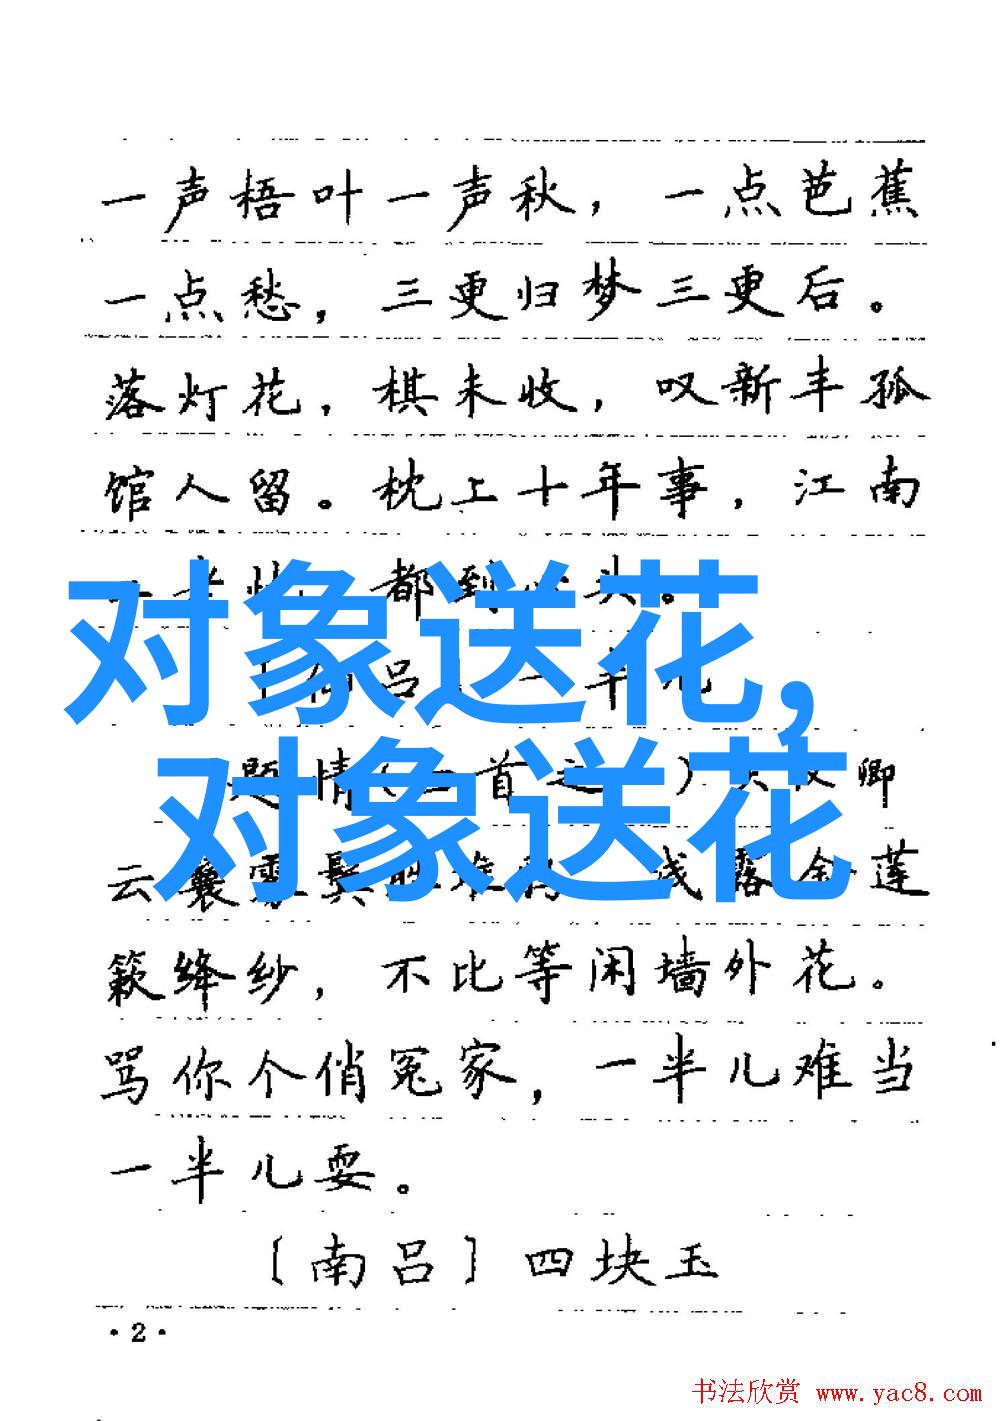 一声梧叶一声秋，一点芭蕉
一点愁，三更归梦三更后。
落灯花，棋未收，叹新丰孤
馆人留。枕上十年事，江南
都到 头。
对象送花，
吕 一半儿
题情 首 卿
对象送花
云 鬓 浅露金莲
簌绛纱，不比等闲墙外花。
骂你个俏冤家，一半儿难当
一半儿耍。
〔南吕〕四块玉
·2·
书法欣赏 www.yac8.com